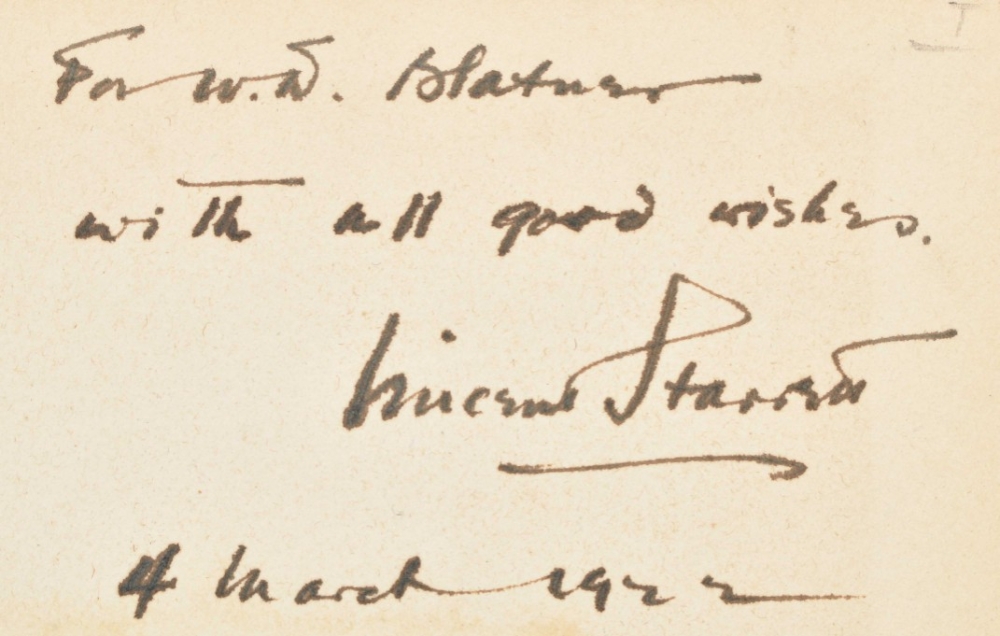 For W.D. Blatner
with all good wishes.
Vincent Starrett
4 March 1922